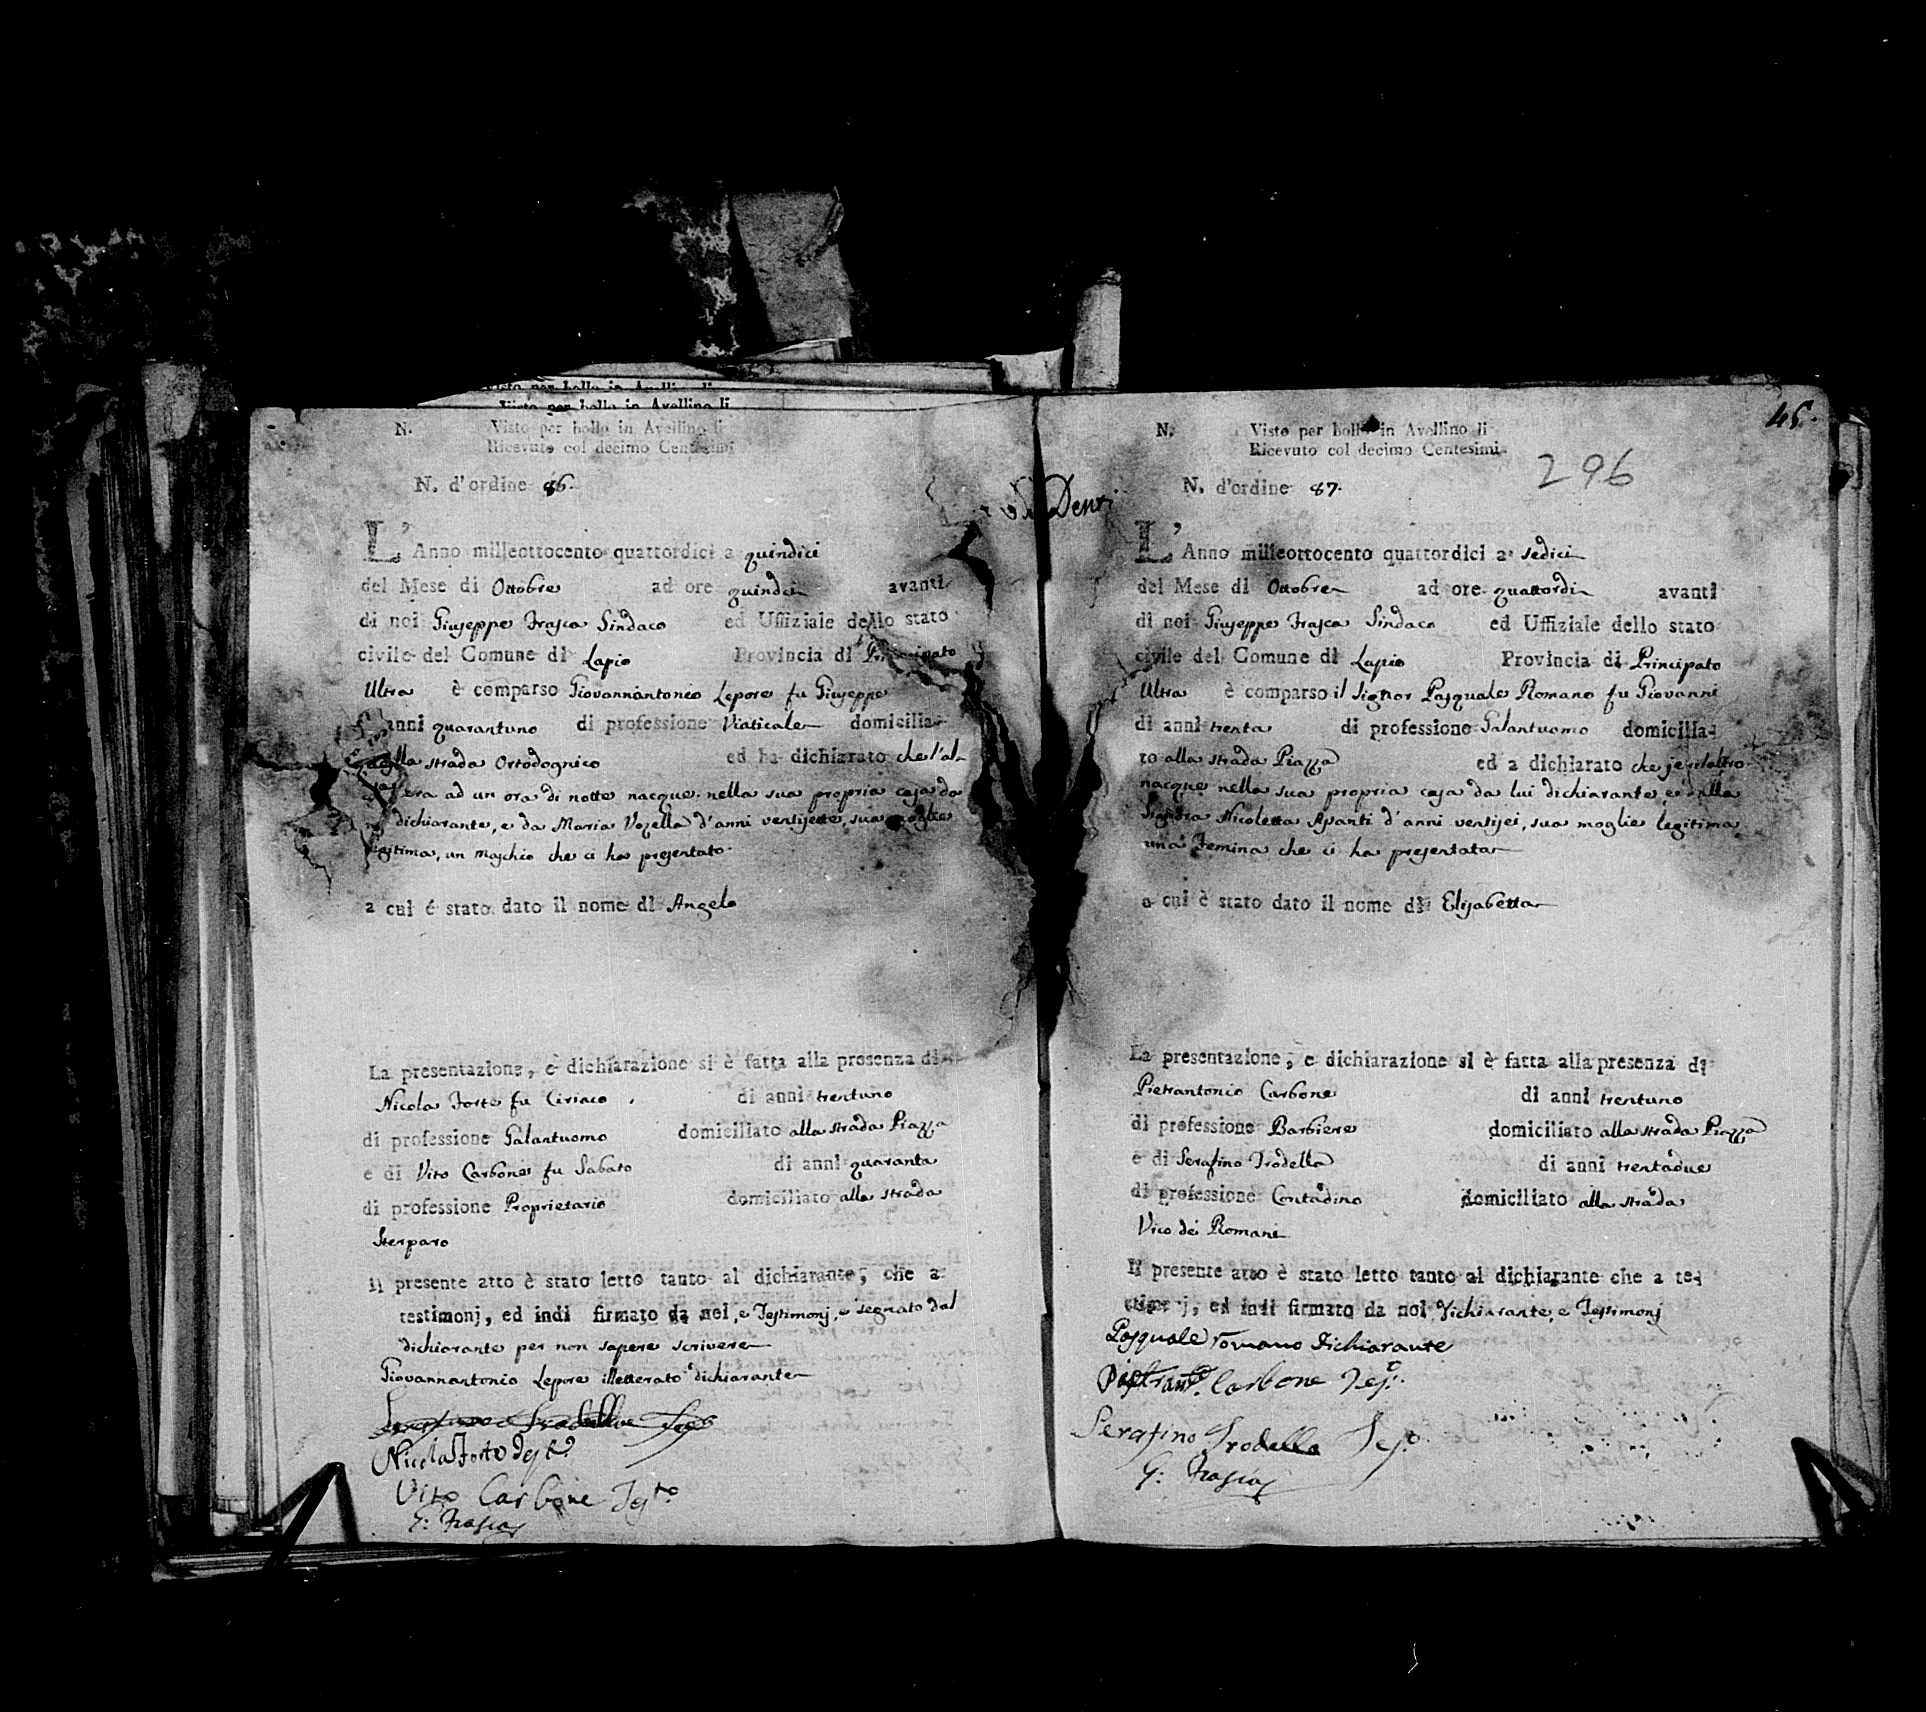 N. Visto per bollo in Avellino li
Ricevuto col decimo Centesimi
N. d'ordine 86.
L'Anno milleottocento quattordici a quindici
del Mese di Ottobre ad ore quindici avanti
di noi Giuseppe Frasca Sindaco ed Uffiziale dello stato
civile del Comune di Lapio Provincia di Principato
Ultra è comparso Giovannantonio Lepore fu Giuseppe
anni quarantuno di professione Viaticale domicilia-
alla strada Ortodognico ed ha dichiarato che l'al-
era ad un ora di notte nacque nella sua propria casa da
dichiarante, e da Maria Vozella d'anni ventisette, sua moglie
legitima, un maschio che ci ha presentato
a cui é stato dato il nome di Angelo
La presentazione, e dichiarazione si è fatta alla presenza di
Nicola Forte fu Ciriaco di anni trentuno
di professione Galantuomo domiciliato alla strada Piazza
e di Vito Carbone fu Sabato di anni quaranta
di professione Proprietario domiciliato alla strada
Sterparo
Il presente atto è stato letto tanto al dichiarante, che a
testimonj, ed indi firmato da noi, e Testimonj, e segnato dal
dichiarante per non sapere scrivere
Giovannantonio Lepore illetterato dichiarante
Nicola Forte Testo
Vito Carbone Testo
G: Frasca
45.
N. Visto per bollo in Avellino li
Ricevuto col decimo Centesimi
296
N. d'ordine 87.
L'Anno milleottocento quattordici a sedici
del Mese di Ottobre ad ore quattordici avanti
di noi Giuseppe Frasca Sindaco ed Uffiziale dello stato
civile del Comune di Lapio Provincia di Principato
Ultra è comparso il Signor Pasquale Romano fu Giovanni
di anni trenta di professione Galantuomo domicilia-
to alla strada Piazza ed a dichiarato che jeri l'altro
nacque nella sua propria casa da lui dichiarante, e dalla
Signora Nicoletta Apanti d'anni ventisei, sua moglie legitima
una Femina che ci ha presentata
a cui è stato dato il nome di Elisabetta
La presentazione, e dichiarazione si è fatta alla presenza di
Pietrantonio Carbone di anni trentuno
di professione Barbiere domiciliato alla strada Piazza
e di Serafino Trodella di anni trentadue
di professione Contadino domiciliato alla strada
Vico dei Romani
Il presente atto è stato letto tanto al dichiarante che a te-
stimonj, ed indi firmato da noi, Dichiarante, e Testimonj
Pasquale romano Dichiarante
Pietrant.o Carbone Tes.o
Serafino Trodella Tes.o
G: Frasca